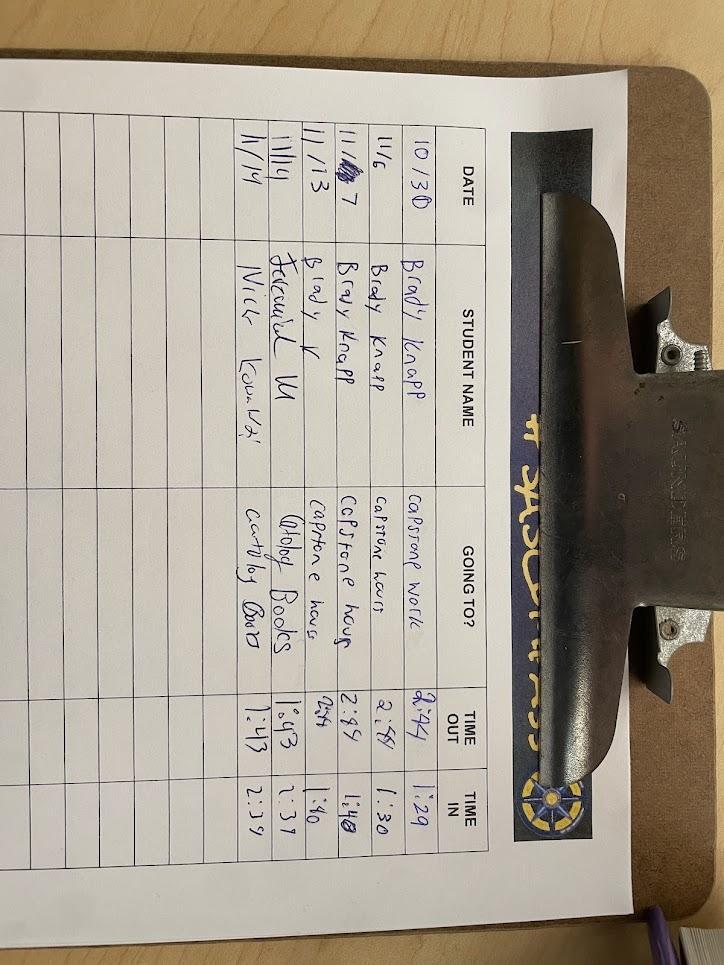 SAUNDERS
DATE STUDENT NAME GOING TO? TIME OUT TIME IN
10/30 Brady Knapp capstone work 2:44 1:29
11/6 Brady Knapp capstone hours 2:44 1:30
11/7 Brady Knapp capstone hours 2:44 1:40
11/13 Brady K capstone hours 2:44 1:40
11/14 Jeremiah M Catolog Books 1:43 2:39
11/14 Nick catolog 1:43 2:39